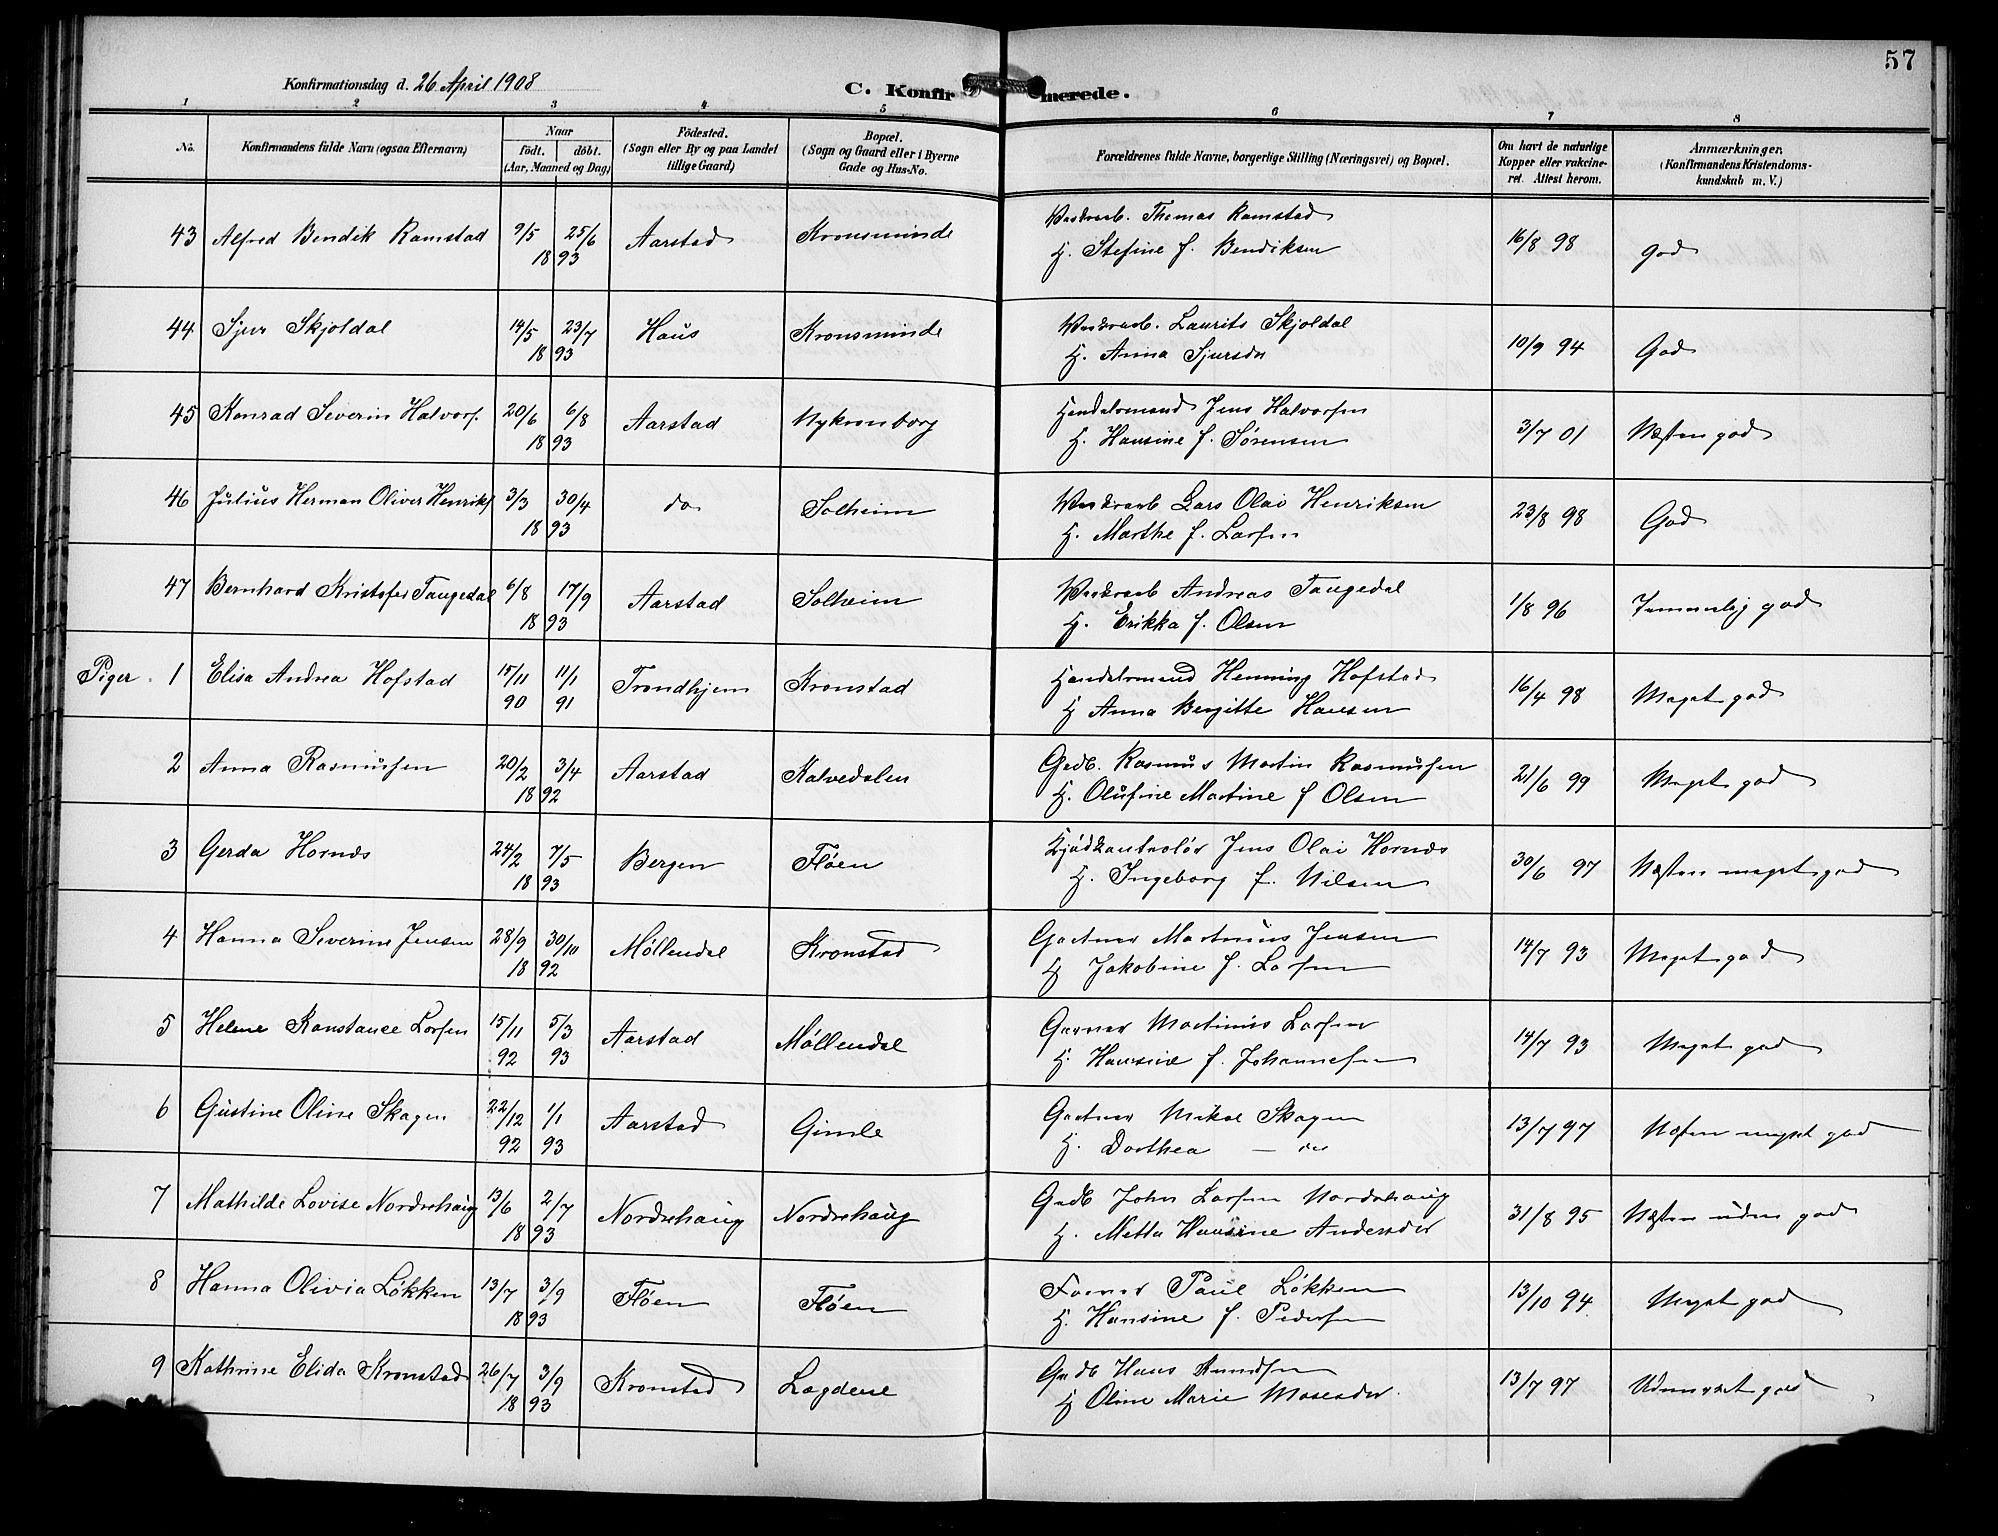 57
Konfirmationsdag d. 26 April 1908
C. Konfirmerede.
1 2 3 4 5 6 7 8
No. Konfirmandens fulde Navn (ogsaa Efternavn) Naar födt. döbt. (Aar, Maaned og Dag) Födested. (Sogn eller By og paa Landet tillige Gaard) Bopæl. (Sogn og Gaard eller i Byerne Gade og Hus-No. Forældrenes fulde Navne, borgerlige Stilling (Næringsvei) og Bopæl. Om havt de naturlige Kopper eller vakcineret. Attest herom. Anmærkninger. (Konfirmandens Kristendomskundskab m. V.)
43 Alfred Bendik Ramstad 9/5 25/6 1893 Aarstad Kronsminde Thomas Ramstad
H. Stefine f. Bendiksen 16/8 98 God
44 Sjur Skjoldal 14/5 23/7 1893 Haus Kronsminde Laurits Skjoldal
H. Anna Sjursdr 10/9 94 God
45 Konrad Severin Halvors. 20/6 6/8 1893 Aarstad Nykronborg Handelsmand Jens Halvorsen
H. Hansine f. Sørensen 3/7 01 Næsten god
46 Julius Herman Oliver Henriks 3/3 30/4 1893 do Solheim Lars Olai Henriksen
H. Marthe f. Larsen 23/8 98 God
47 Bernhard Kristofer Taugedal 6/8 17/9 1893 Aarstad Solheim Andreas Taugedal
H. Erikka f. Olsen 1/8 96 Temmelig god
Piger. 1 Elisa Andrea Hofstad 15/11 90 11/1 91 Trondhjem Kronstad Handelsmand Henning Hofstad
H Anna Bergitte Hansen 16/4 98 Meget god
2 Anna Rasmussen 20/2 3/4 1892 Aarstad Kalvedalen Gadb. Rasmus Martin Rasmussen
H. Olufine Martine f Olsen 21/6 99 Meget god
3 Gerda Hornæs 24/2 7/5 1893 Bergen Fløen Kjødkontrolør Jens Olai Hornæs
H. Ingeborg f. Nilsen 30/6 97 Næsten meget god
4 Hanna Severine Jensen 28/9 30/10 1892 Møllendal Kronstad Gartner Martinius Jensen
H Jakobine f. Larsen 14/7 93 Meget god
5 Helene Konstance Larsen 15/11 92 5/3 93 Aarstad Møllendal Garver Martinius Larsen
H. Hansine f. Johannesen 14/7 93 Meget god
6 Gustine Oline Skagen 22/12 92 1/1 93 Aarstad Gimle Gartner Mikal Skagen
H. Dorthea — 13/7 97 Næsten meget god
7 Mathilde Lovise Nordrehaug 13/6 2/7 1893 Nordrehaug Nordrehaug Gadb John Larsen Nordrehaug
H. Metta Hansine Andersdr 31/8 95 Næsten uden god
8 Hanna Olivia Løkken 13/7 3/9 1893 Fløen Fløen Paul Løkken
H. Hansine f. Pedersen 13/10 94 Meget god
9 Kathrine Elida Kronstad 26/7 3/9 1893 Kronstad Lægdene Gadb Hans Knudsen
H Oline Marie Monsdr. 13/7 97 Udmerket god